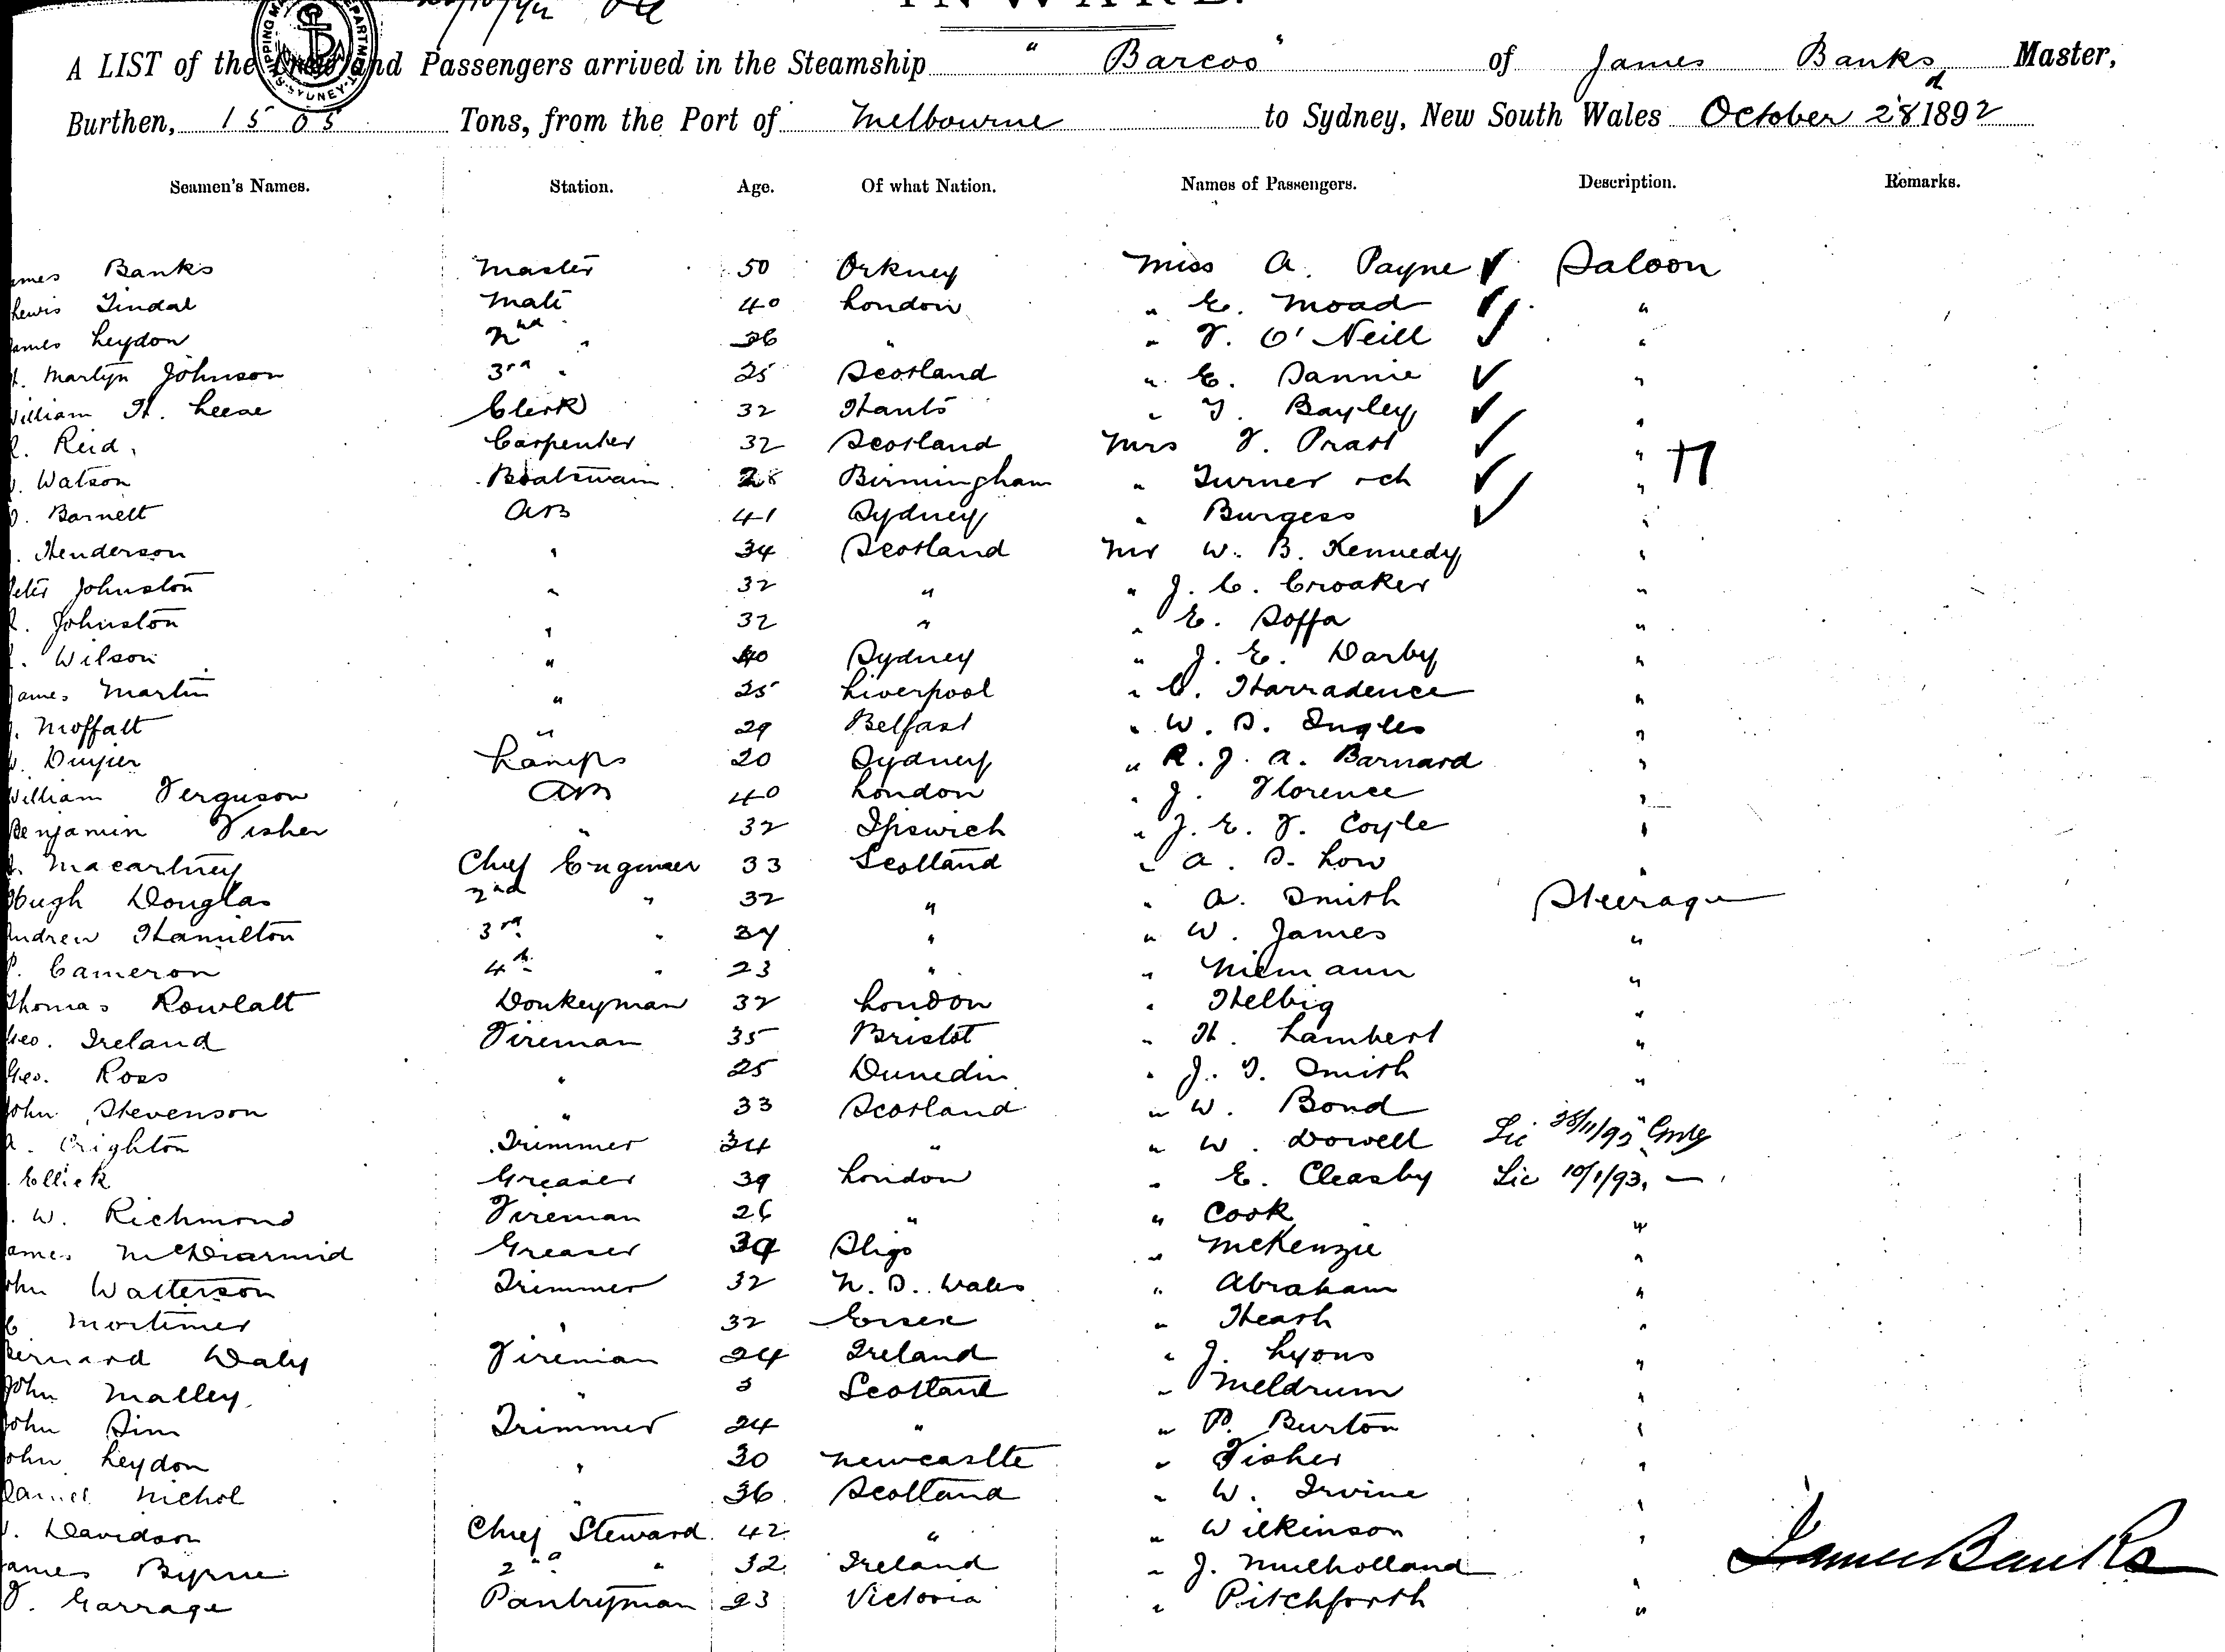 INWARD.
A LIST of the Crew and Passengers arrived in the Steamship "Barcoo" of James Banks Master,
Burthen, 1505 Tons, from the Port of Melbourne to Sydney, New South Wales October 28th 1892
Seamen's Names. Station. Age. Of what Nation. Names of Passengers. Description. Remarks.
ames Banks Master 50 Orkney Miss A. Payne ✓ Saloon
Lewis Tindal Mate 40 London " E. Moad ✓ "
James Leydon 2nd " 36 " " F. O'Neill ✓ "
Martyn Johnson 3rd " 25 Scotland " E. Sannie ✓ "
William H. Leese Clerk 32 Hants " Bayley ✓ "
R. Reid. Carpenter 32 Scotland Mrs F. Pratt ✓ "
Watson Boatswain 28 Birmingham " Turner & ch ✓ "
Barnett AB 41 Sydney " Burgess ✓ "
Henderson " 34 Scotland Mr W. B. Kennedy "
Peter Johnston " 32 " " J. C. Croaker "
Johnston " 32 " " E. Soffa "
Wilson " 40 Sydney " J. E. Darby "
James Martin " 25 Liverpool " C. Harradence "
Moffatt " 29 Belfast " W. S. Ingles "
Lamps 20 Sydney " R. J. A. Barnard "
William Ferguson AB 40 London " J. Florence "
Benjamin Fisher " 32 Ipswich " J. E. F. Coyle "
Macartney Chief Engineer 33 Scotland " A. S. Low "
Hugh Douglas 2nd " 32 " " A. Smith Steerage
Andrew Hamilton 3rd " 34 " " W. James "
P. Cameron 4th " 23 " " Niemann "
Thomas Rowlatt Donkeyman 32 London " Helbig "
Geo. Ireland Fireman 35 Bristol " H. Lambert "
Geo. Ross " 25 Dunedin " J. T. Smith "
John Stevenson " 33 Scotland " W. Bond "
A. Crighton Trimmer 34 " " W. Dowell Lic
Ellick Greaser 39 London " E. Cleasby Lic 10/1/93. —
W. Richmond Fireman 26 " " Cook "
ames McDiarmid Greaser 39 Sligo " McKenzie "
ohn Watterson Trimmer 32 N. S. Wales " Abraham "
C Mortimer " 32 Essex " Heath "
Bernard Daly Fireman 24 Ireland " J. Lyons "
John Malley. " 3 Scotland " Meldrum "
John Sim Trimmer 24 " " P. Burton "
John Leydon " 30 Newcastle " Fisher "
Daniel Nichol " 36 Scotland " W. Irvine "
Davidson Chief Steward 42 " " Wilkinson "
ames Byrne 2nd " 32 Ireland " J. Mulholland "
F. Garrage Pantryman 23 Victoria " Pitchforth "
James Banks